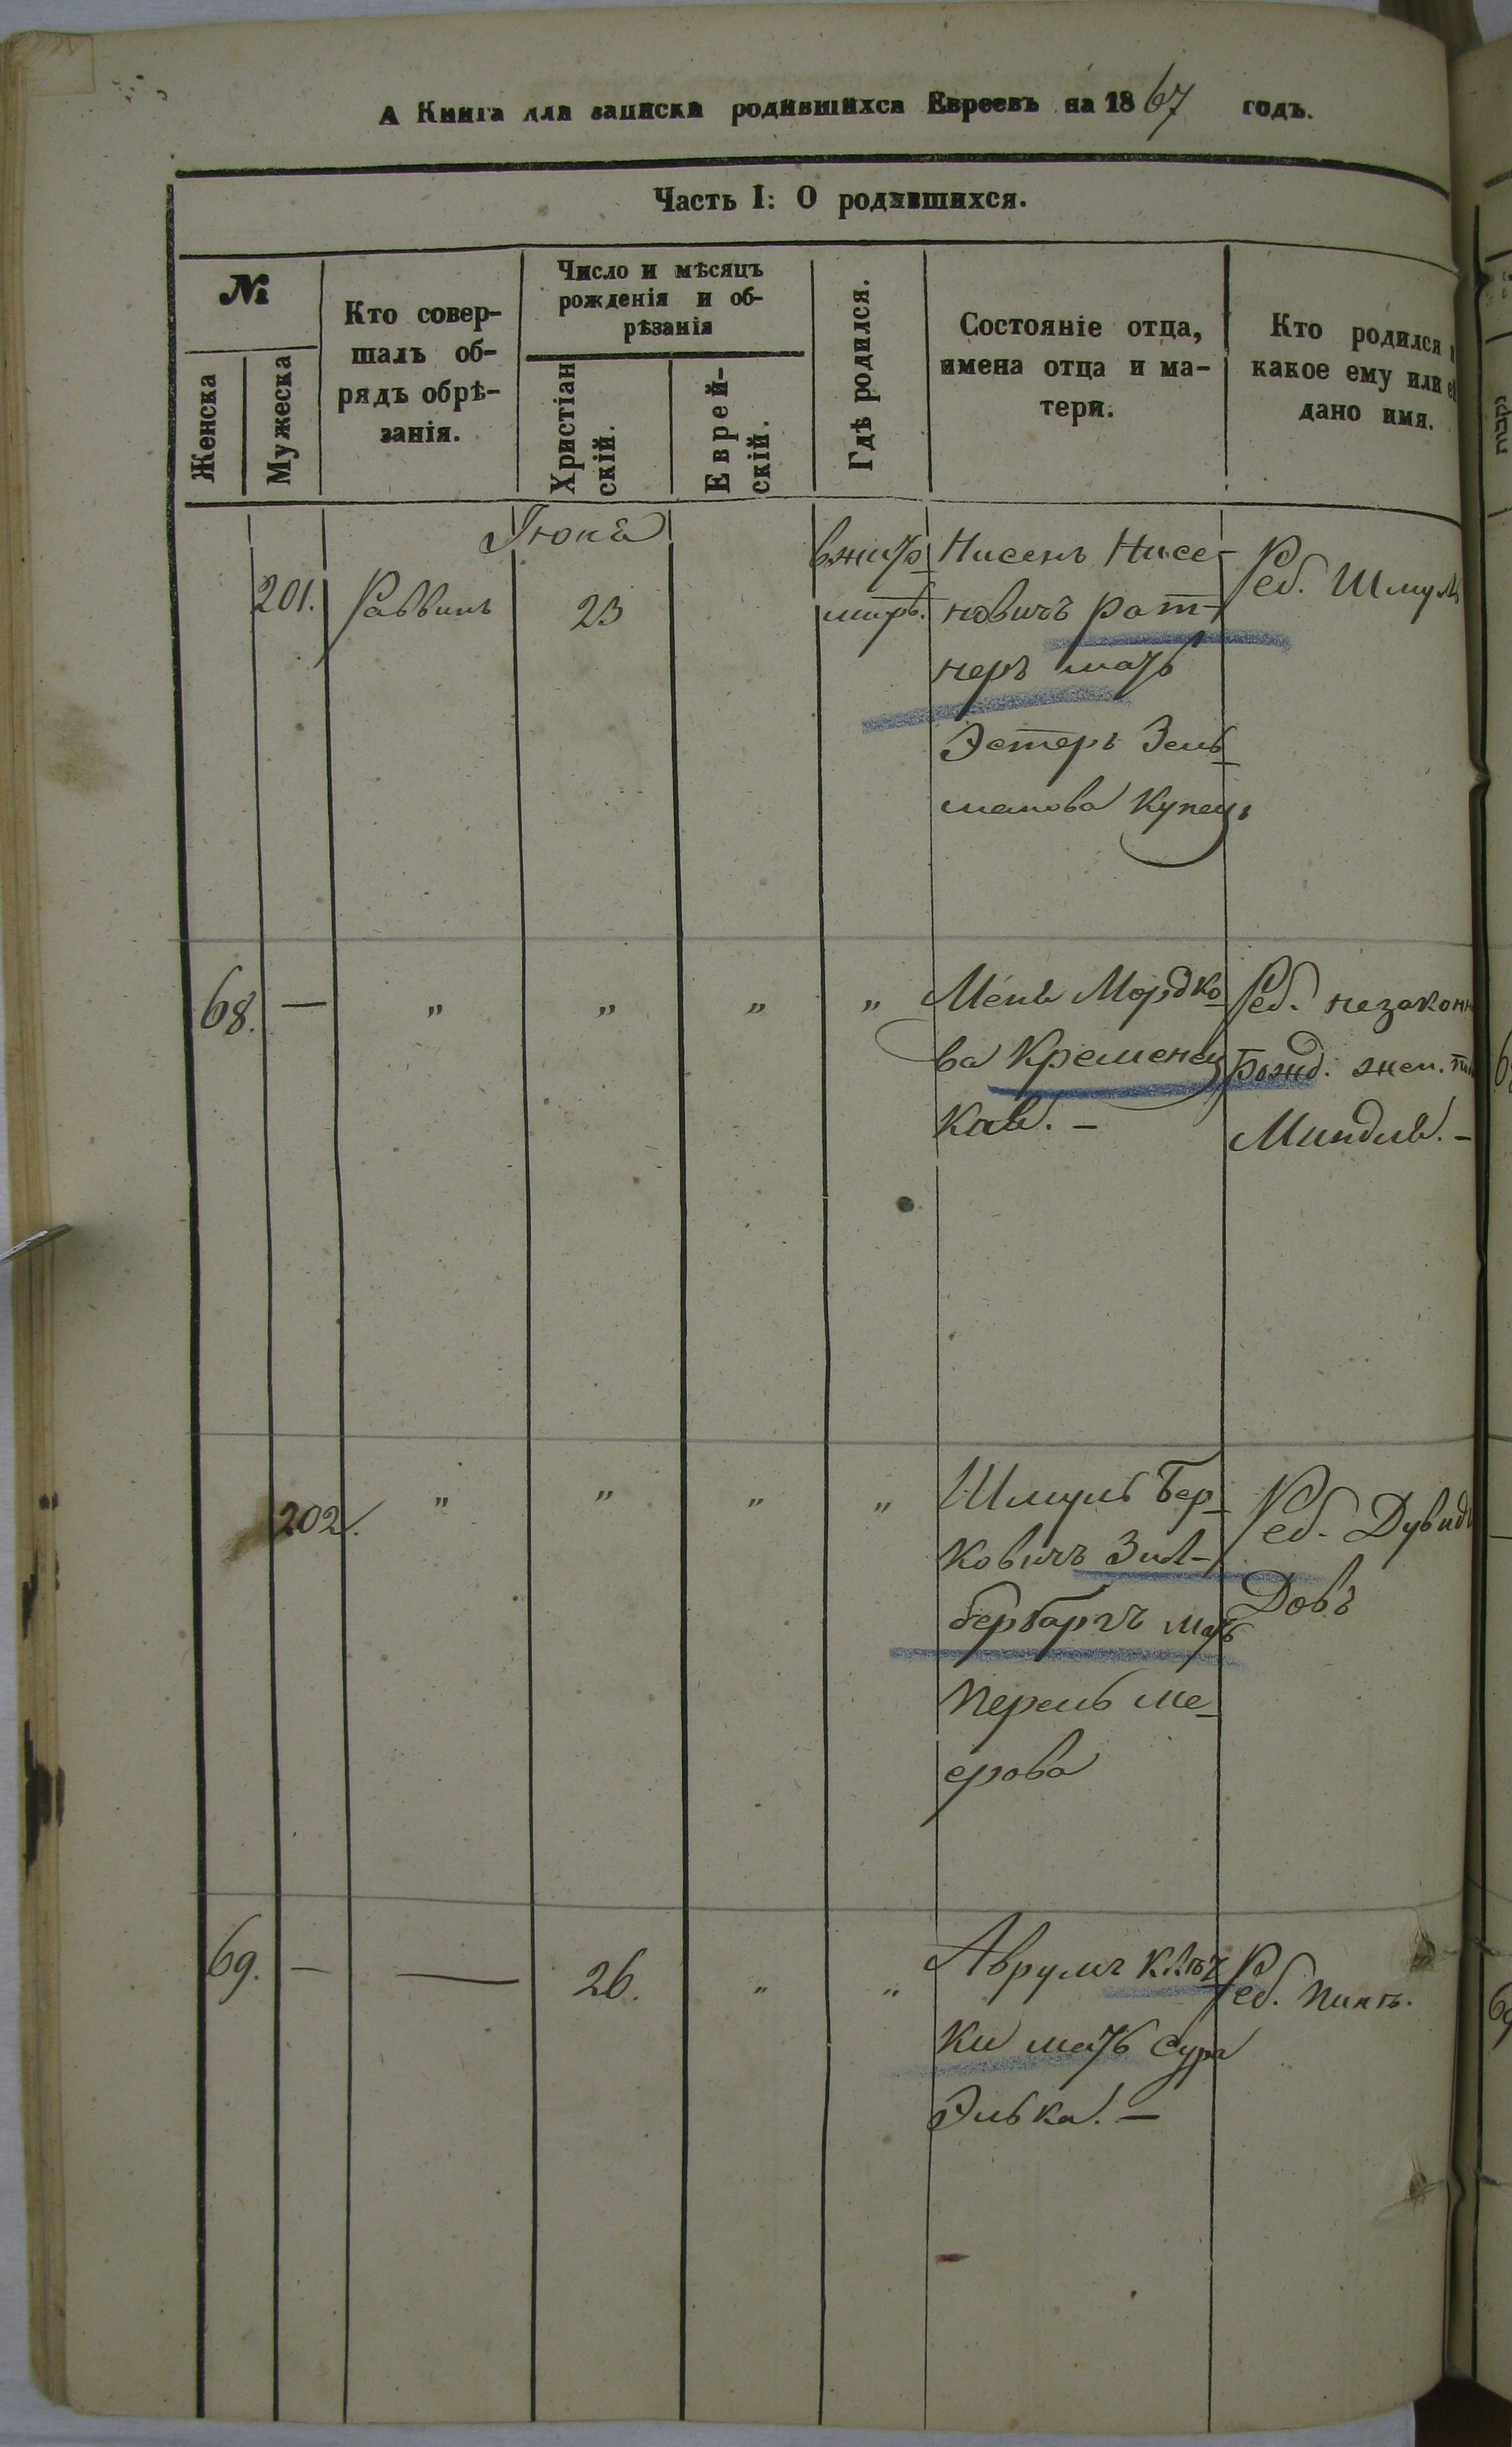 А Книга для записки родившихся Евреевъ на 1867 годъ.
Часть I: О родившихся.
№
Женска
Мужеска
Кто совер-
шалъ об-
рядъ обрѣ-
занія.
Число и мѣсяцъ
рожденія и об-
рѣзанія
Христіан
скій.
Еврей-
скій.
Гдѣ родился.
Состояніе отца,
имена отца и ма-
тери.
Кто родился
какое ему или
дано имя.
201. Раввинъ
23
Нисенъ Нисе-
новичъ Рат-
неръ мать
Эстеръ Зель
манова Купец
Реб. Шмуль
68. — " " " "
Мордко
ва Кременец
кая. -
Реб. незаконн
рожд. жен.
Миндля. -
202. " " " "
Шмуль Бер
ковичъ Зил-
бербаргъ мать
Перель Ме
ерова
Реб. Дувидъ
Довъ
69. — — 26. " "
Аврумъ
ки мать Сура
Элька. —
Реб.